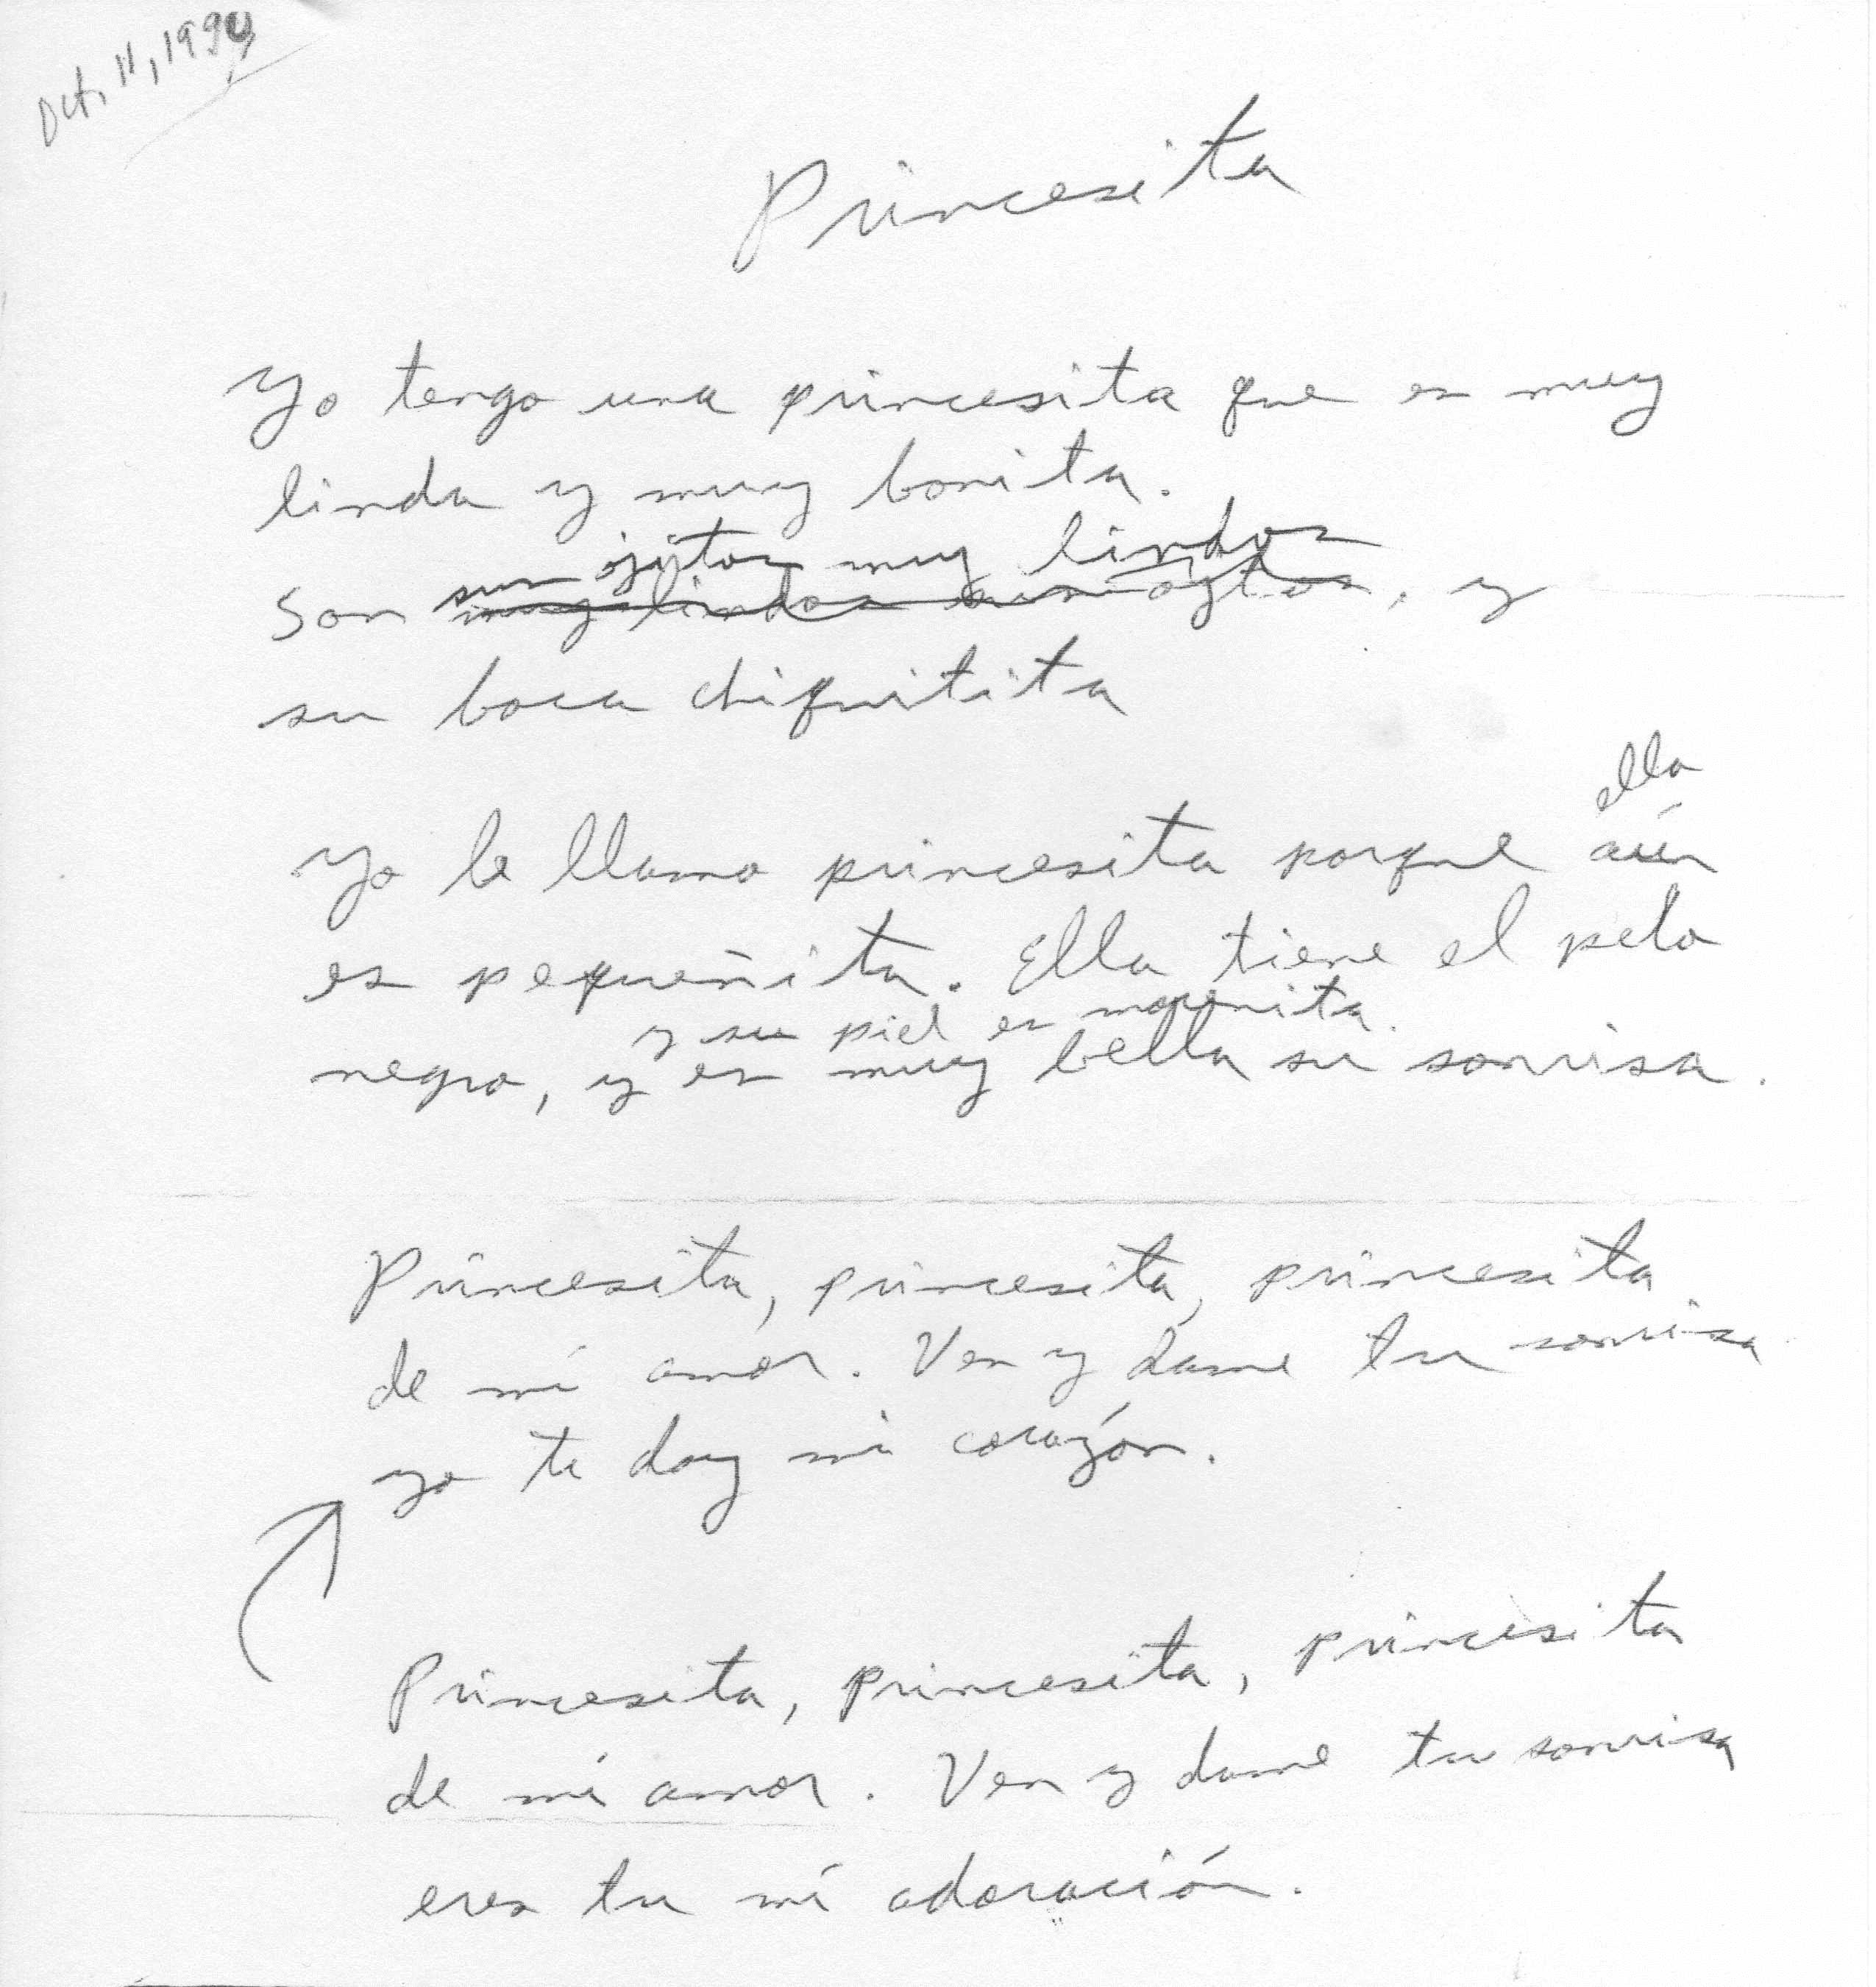 Oct. 11, 1990
Princesita
Yo tengo una princesita que es muy
linda y muy bonita.
sus ojitos muy lindos
Son muy lindos sus ojitos, y
su boca chiquitita
ella
Yo le llamo princesita porque aún
es pequeñita. Ella tiene el pelo
y su piel es morenita.
negro, y es muy bella su sonrisa.
Princesita, princesita, princesita
de mi amor. Ven y dame tu sonrisa
yo te doy mi corazón.
Princesita, princesita, princesita
de mi amor. Ven y dame tu sonrisa
eres tu mi adoración.